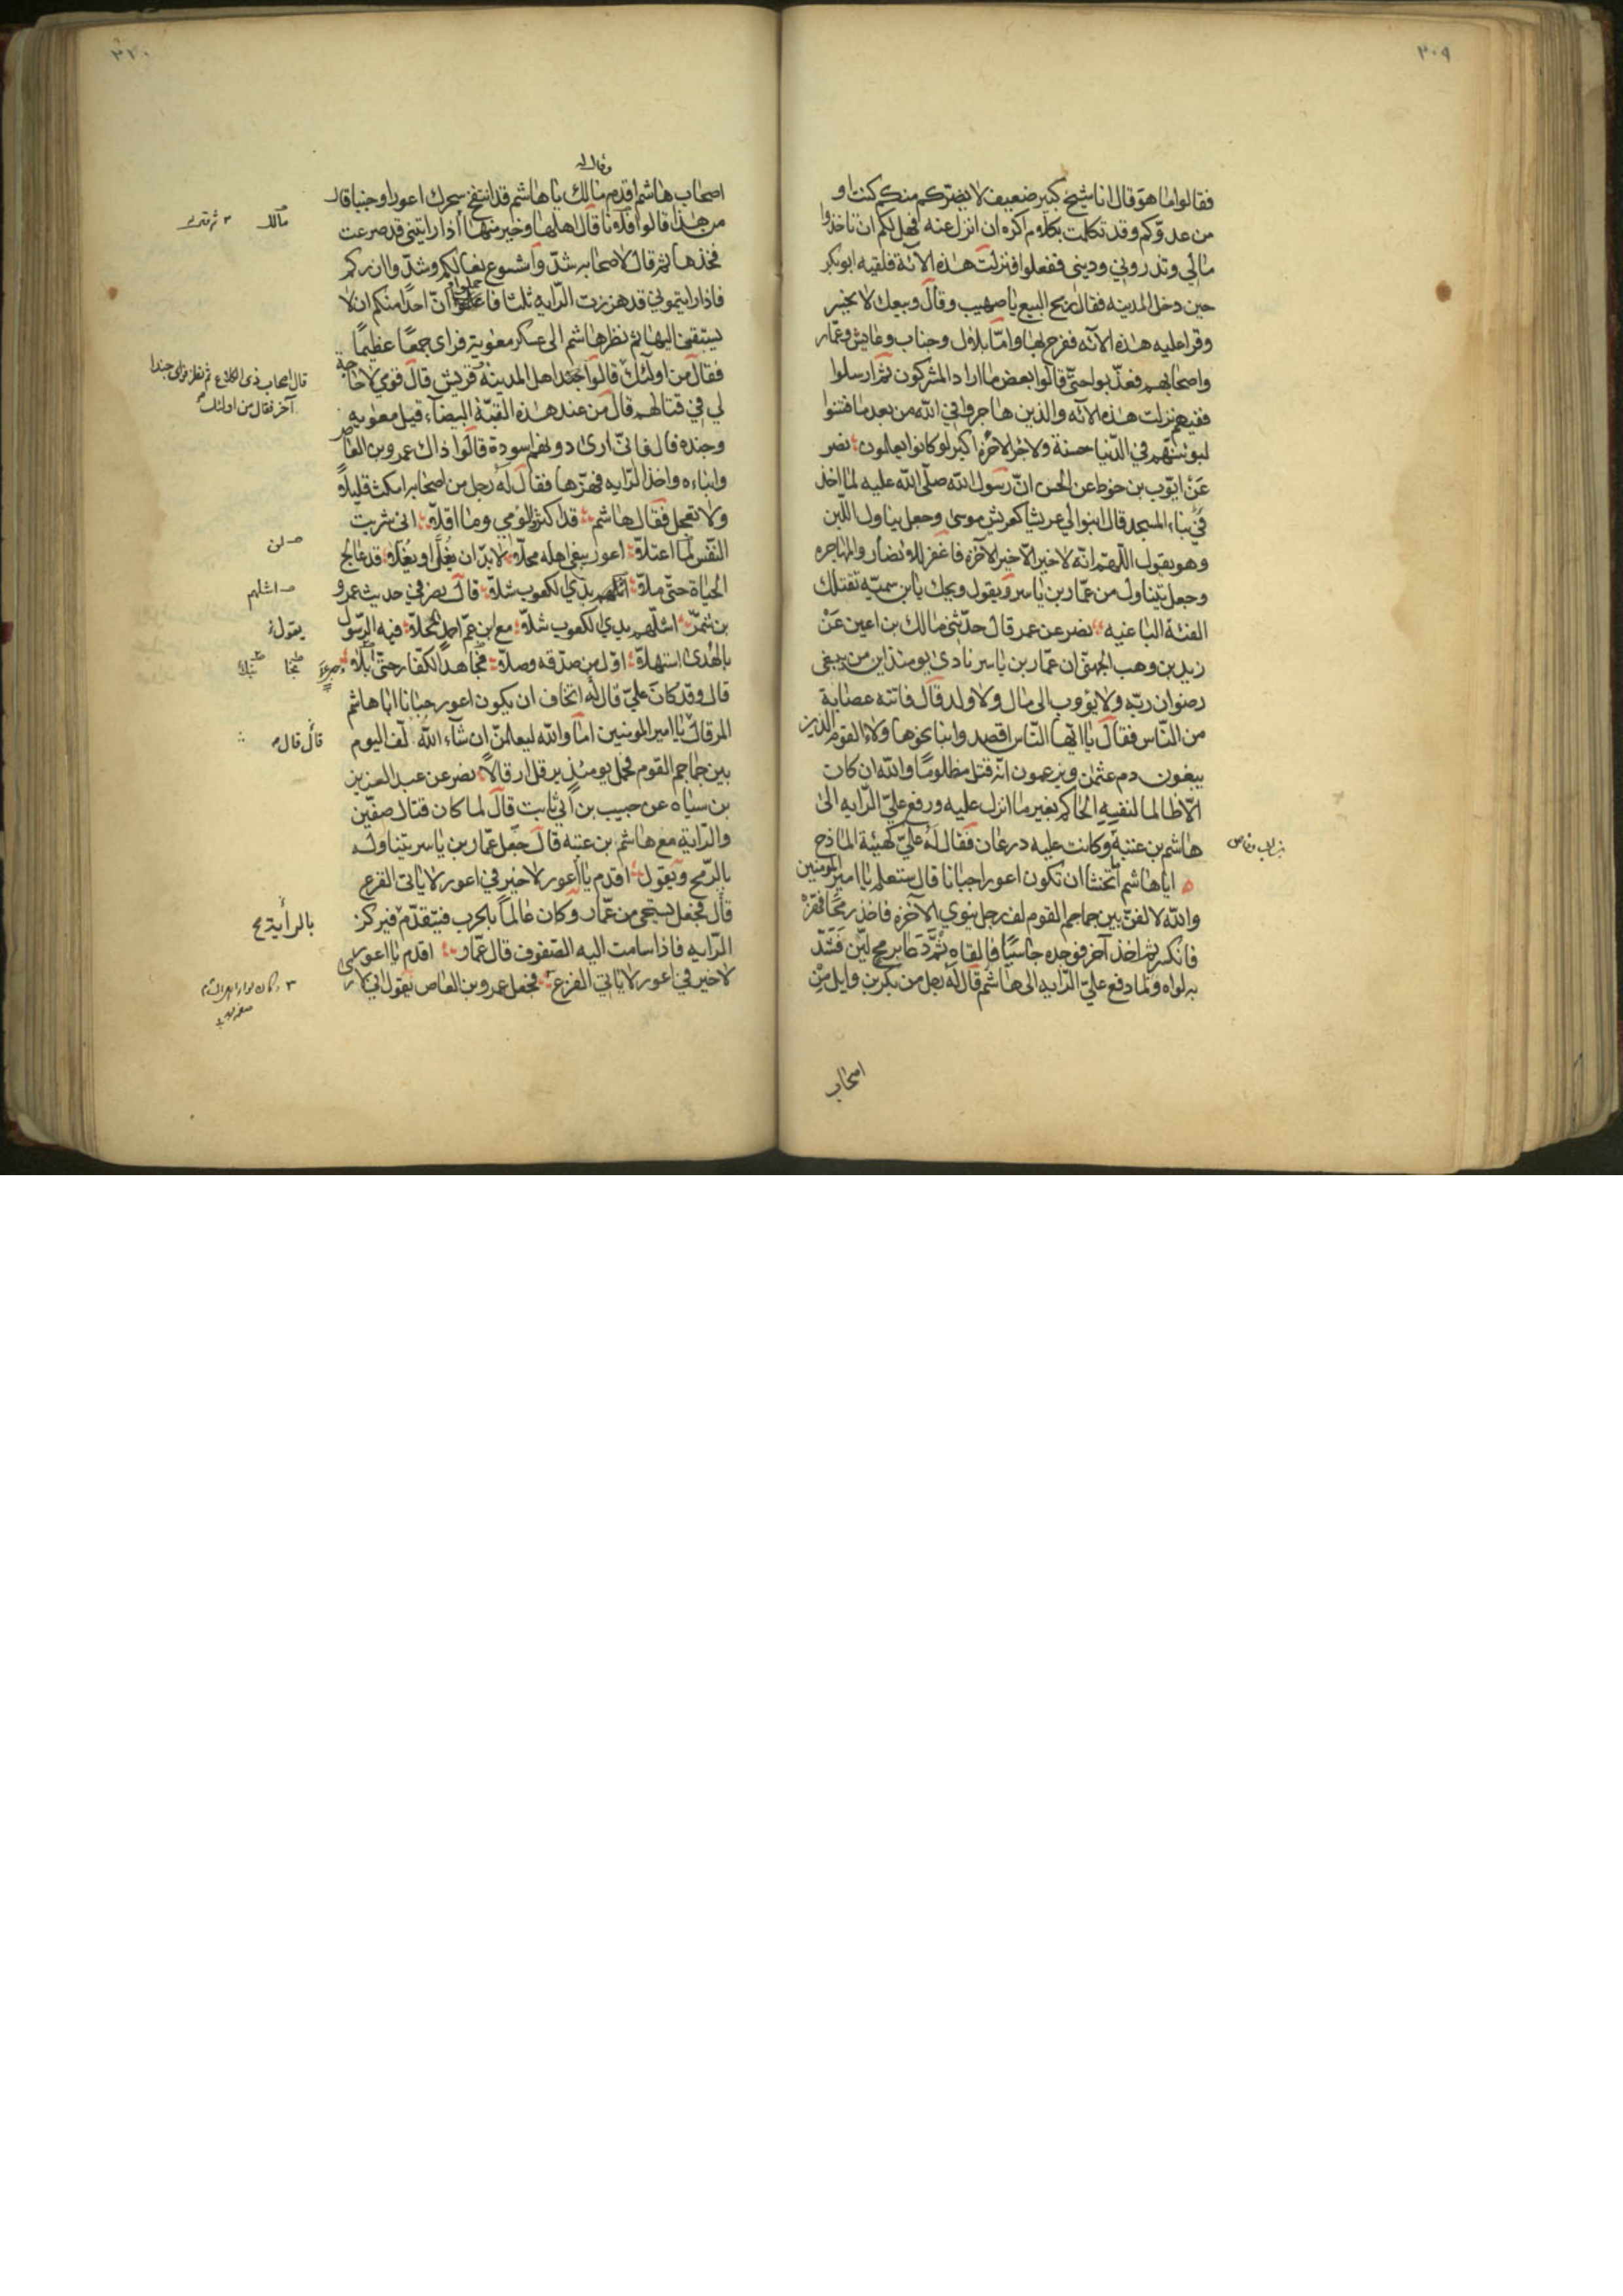 ٣٠٩
فقالوا ما هو قال انا شيخ كبير ضعيف لا يضركم منكم كنت او
من عدوّكم وقد تكلمت بكلام اكره ان انزل عنه فهل لكم ان تاخذوا
مالي وتذروني وديني ففعلوا فنزلت هذه الآية فلقيه ابو بكر
حين دخل المدينه فقال ربح البيع يا صهيب وقال وبيعك لا يخسر
وقرا عليه هذه الآيه ففرح بها واما بلال وخباب وعايش وعمّار
واصحابهم فعذّبوا حتّى قالوا بعض ما اراد المشركون ثم ارسلوا
ففيهم نزلت هذه الآيه والذين هاجروا في الله من بعد ما فتنوا
لنبوئنّهم في الدّنيا حسنة ولاجر الآخرة اكبر لو كانوا يعلمون نصر
عن ايّوب بن خوط عن الحسن انّ رسول الله صلّى الله عليه لما اخذ
في بناء المسجد قال ابنوا لي عريشا كعريش موسى وجعل يناول اللبن
وهو يقول اللّهمّ انّه لا خير الّا خير الآخرة فاغفر للانصار والمهاجره
وجعل يتناول من عمّار بن ياسر ويقول ويحك يا بن سميّه تقتلك
الفئة الباغيه نصر عن عمر قال حدّثني مالك بن اعين عن
زيد بن وهب الجهني ان عمّار بن ياسر نادى يومئذ اين من يبغى
رضوان ربّه ولا يؤوب الى مال ولا ولد قال فاتته عصابة
من النّاس فقال يا ايّها النّاس اقصدوا بنا نحو هاولاء القوم الذين
يبغون دم عثمن ويزعمون انّه قتل مظلومًا والله ان كان
الّا ظالما لنفسه الحاكم بغير ما انزل عليه ورفع عليّ الرّايه الى
هاشم بن عتبة وكانت عليه درعان فقال له عليّ كهيئة المازح
ايا هاشم اتخشا ان تكون اعور اجبانا قال ستعلم يا امير المومنين
والله لالفنّ بين جماجم القوم لف رجل ينوي الآخرة فاخذ رمحًا فهزّه
فانكسر ثم اخذ آخر فوجده جاسيًا فالقاه ثم دعا برمح ليّن فشدّ
به لواه ولما دفع عليّ الرّايه الى هاشم قال له رجل من بكر بن وايل من
اصحاب
٣١٠
وقال له
اصحاب هاشم اقدم مالك يا هاشم قد انتفخ سحرك اعورا وجبنا قال
من هذا قالوا فلانا قال اهلها وخير منها اذا رايتني قد صرعت
فخذها ثم قال لاصحابه شدّوا شسوع نعالكم وشدّوا ازركم
فاذا رايتموني قد هززت الرّايه ثلثا فاعلموا انّ احدًا منكم ان لا
يسبقني اليها ثم نظر هاشم الى عسكر معوية فراى جمعًا عظيمًا
فقال من اولئك قالوا جند اهل المدينه قريش قال قومي لا حاجة
لي في قتالهم قال من عند هذه القبّة البيضاء قيل معويه
وجنده قال فانّي ارى دونهم اسودة قالوا ذاك عمرو بن العاص
وابناءه واخذ الرّايه فهزّها فقال له رجل من اصحابه امكث قليلا
ولا تعجل فقال هاشم قد اكثروا لومي وما اقلّا انى شريت
النّفس لما اعتلّا اعور يبغي اهله محلّا لا بدّ ان يفلا او يفلا قد عالج
الحياة حتّى ملّا اشلهم بذي الكعوب شلّا قال نصر في حديث عمرو
بن شمر اشلّهم بذي الكعوب شلّا مع ابن عمّ احمد المحلّا فيه الرّسول
بالهُدى استهلّا اوّل من صدّقه وصلّا فجاهد الكفّار حتّى ابلا
قال وقد كان عليّ قال له اتخاف ان يكون اعور جبانا ايا هاشم
المرقال يا امير المومنين اما والله ليعلمنّ ان شاء الله الف اليوم
بين جماجم القوم فحمل يومئذ يرقل ارقالًا نصر عن عبد العزيز
بن سياه عن حبيب بن ابي ثابت قال لما كان قتال صفّين
والرّاية مع هاشم بن عتبه قال جعل عمّار بن ياسر يتناوله
بالرّمح ويقول اقدم يا اعور لا خير في اعور لا ياتى الفزع
قال فجعل يستحي من عمّار وكان عالماً بالحرب فيتقدّم فيركز
الرّايه فاذا سامت اليه الصّفوف قال عمّار اقدم يا اعور
لا خير في اعور لا ياتي الفزع فجعل عمرو بن العاص يقول اني لارى
مالك
قال اصحاب ذى الكلاع ثم نظر فراى جندا
آخر فقال من اولئك
لن
اشلهم
يقول
قال قال